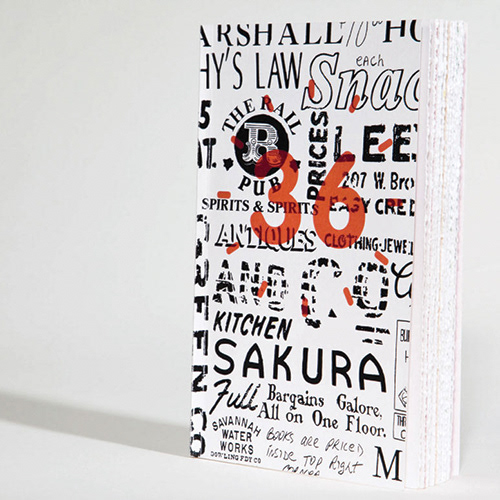 ARSHALL
HY'S LAW
EACH
Snac
THE RAIL
R
PUB
PRICES
LEE
36
207 W. Bro
SPIRITS & SPIRITS
EASY CRED
ANTIQUES
CLOTHING-JEWE
AND
CO
KITCHEN
SAKURA
Full
Bargains Galore,
All on One Floor.
SAVANNAH
WATER
WORKS
BOWLING FDY CO
BOOKS ARE PRICED
INSIDE TOP Right
M